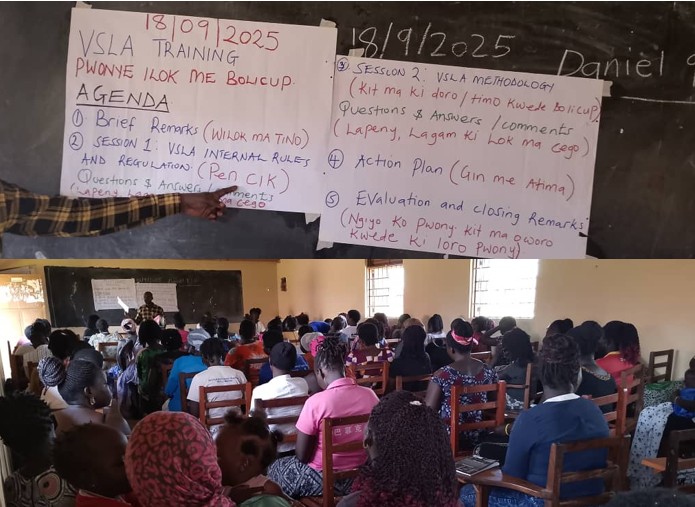 18/09/2025
VSLA TRAINING
PWONYE ILOK ME BOLICUP.
AGENDA
① Brief Remarks (WILOK MA TINO)
② SESSION 1: VSLA INTERNAL RULES
AND REGULATION. (Pen CIK)
Questions & Answers /comments
(Lapeny, ma cego
18/9/2025
Daniel
③ SESSION 2: VSLA METHODOLOGY
(Kit ma ki doro/timo kwede Bolicup)
Questions & Answers /comments
(Lapeny, Lagam ki Lok ma cego)
④ Action Plan (Gin me Atima)
⑤ Evaluation and closing Remarks
(Ngiyo ko pwony. kit ma gworo
kwede ki loro pwony)